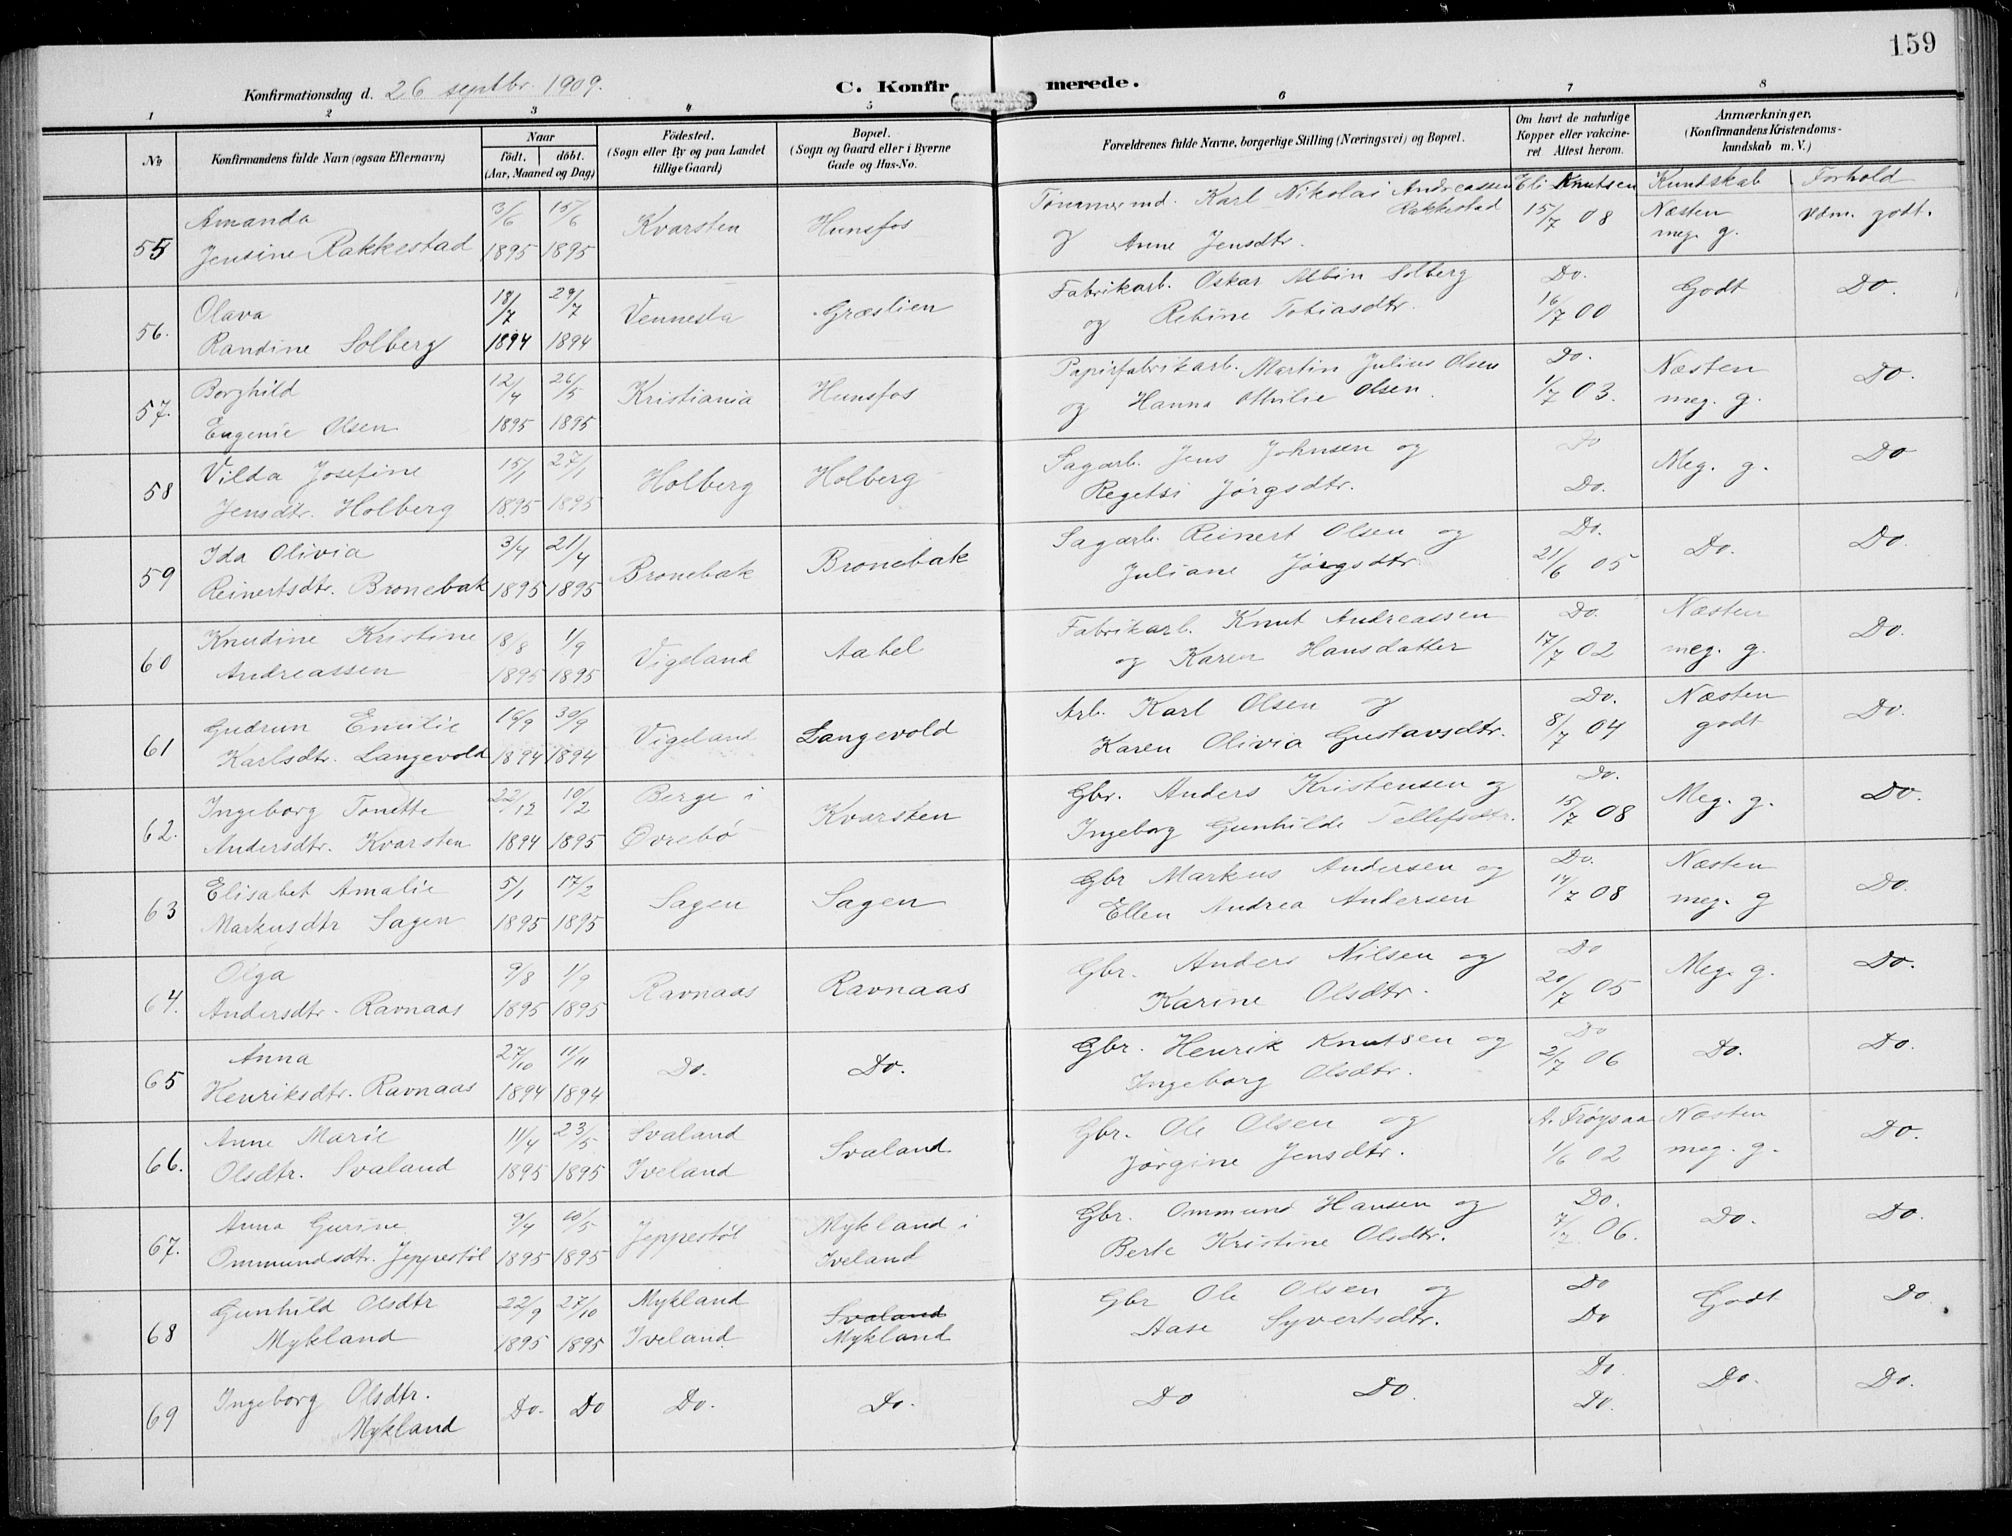 159
Konfirmationsdag d. 26 septbr. 1909.
C. Konfirmerede.
1 2 3 4 5 6 7 8
No
Konfirmandens fulde Navn (ogsaa Efternavn)
Naar
födt. döbt.
(Aar, Maaned og Dag)
Födested.
(Sogn eller By og paa Landet
tillige Gaard)
Bopæl.
(Sogn og Gaard eller i Byerne
Gade og Hus-No.
Forældrenes fulde Navne, borgerlige Stilling (Næringsvei) og Bopæl.
Om havt de naturlige
Kopper eller vakcine-
ret Attest herom.
Anmærkninger.
(Konfirmandens Kristendoms-
kundskab m. V.)
Kundskab Forhold
55 Amanda 3/6 15/6 Kvarsten Hunsfos Tömmermd. Karl Nikolai Andreassen Rakkestad Eli Knutsen Næsten Udm. godt.
Jensine Rakkestad 1895 1895 og Anne Jensdtr. 15/7 08 meg. g.
56. Olava 18/7 29/7 Vennesla Græslien Fabrikarb. Oskar Albin Solberg Do. Godt Do.
Randine Solberg 1894 1894 og Rebine Tobiasdtr. 16/7 00
57. Borghild 12/4 26/5 Kristiania Hunsfos Papirfabrikarb. Martin Julius Olsen Do. Næsten Do.
Eugenie Olsen 1895 1895 og Hanna Othilie Olsen. 1/7 03. meg. g.
58 Vilda Josefine 15/1 27/1 Holberg Holberg Sagarb. Jens Johnsen og Do Meg. g. Do
Jensdtr. Holberg 1895 1895 Regetsi Jørgsdtr. Do.
59 Ida Olivia 3/4 21/4 Bronebak Bronebak Sagarb. Reinert Olsen og Do. Do. Do.
Reinertsdtr. Bronebak 1895 1895 Juliane Jørgsdtr. 21/6 05
60 Knudine Kristine 18/8 1/9 Vigeland Aabel Fabrikarb. Knut Andreassen Do. Næsten Do.
Andreassen 1895 1895 og Karen Hansdatter 17/7 02 meg. g.
61 Gudrun Emilie 16/9 30/9 Vigeland Langevold Arb. Karl Olsen og Do. Næsten Do.
Karlsdtr. Langevold 1894 1894 Karen Olivia Gustavsdtr. 8/7 04 godt
62. Ingeborg Tonette 22/12 10/2 Berge i Kvarsten Gbr. Anders Kristensen og Do. Meg. g. Do.
Andersdtr. Kvarsten 1894 1895 Øvrebö Ingeborg Gunhilde Tellefsdtr. 15/7 08
63 Elisabet Amalie 5/1 17/2 Sagen Sagen Gbr Markus Andersen og Do. Næsten Do.
Markusdtr Sagen 1895 1895 Ellen Andrea Andersen 14/7 08 meg. g
64. Olga 9/8 1/9 Ravnaas Ravnaas Gbr. Anders Nilsen og Do Meg. g. Do.
Andersdtr. Ravnaas 1895 1895 Karine Olsdtr. 20/7 05
65 Anna 27/10 11/11 Do. Do. Gbr. Henrik Knutsen og Do Do. Do.
Henriksdtr. Ravnaas 1894 1894 Ingeborg Olsdtr. 2/7 06
66. Anne Marie 11/4 23/5 Svaland Svaland Gbr. Ole Olsen og A. Frøysaa Næsten Do.
Olsdtr. Svaland 1895 1895 Iveland Jørgine Jensdtr. 1/6 02 meg. g.
67. Anna Gurine 9/4 10/5 Jeppestöl Mykland i Gbr. Ommund Hansen og Do. Do. Do.
Ommundsdtr. Jeppestöl 1895 1895 Iveland Berte Kristine Olsdtr. 7/7 06.
68 Gunhild Olsdtr 22/9 27/10 Mykland Svaland Gbr Ole Olsen og Do Godt Do
Mykland 1895 1895 Iveland Mykland Aase Syvertsdtr. Do
69 Ingeborg Olsdtr. Do. Do Do. Do. Do Do. Do Do. Do.
Mykland Do.